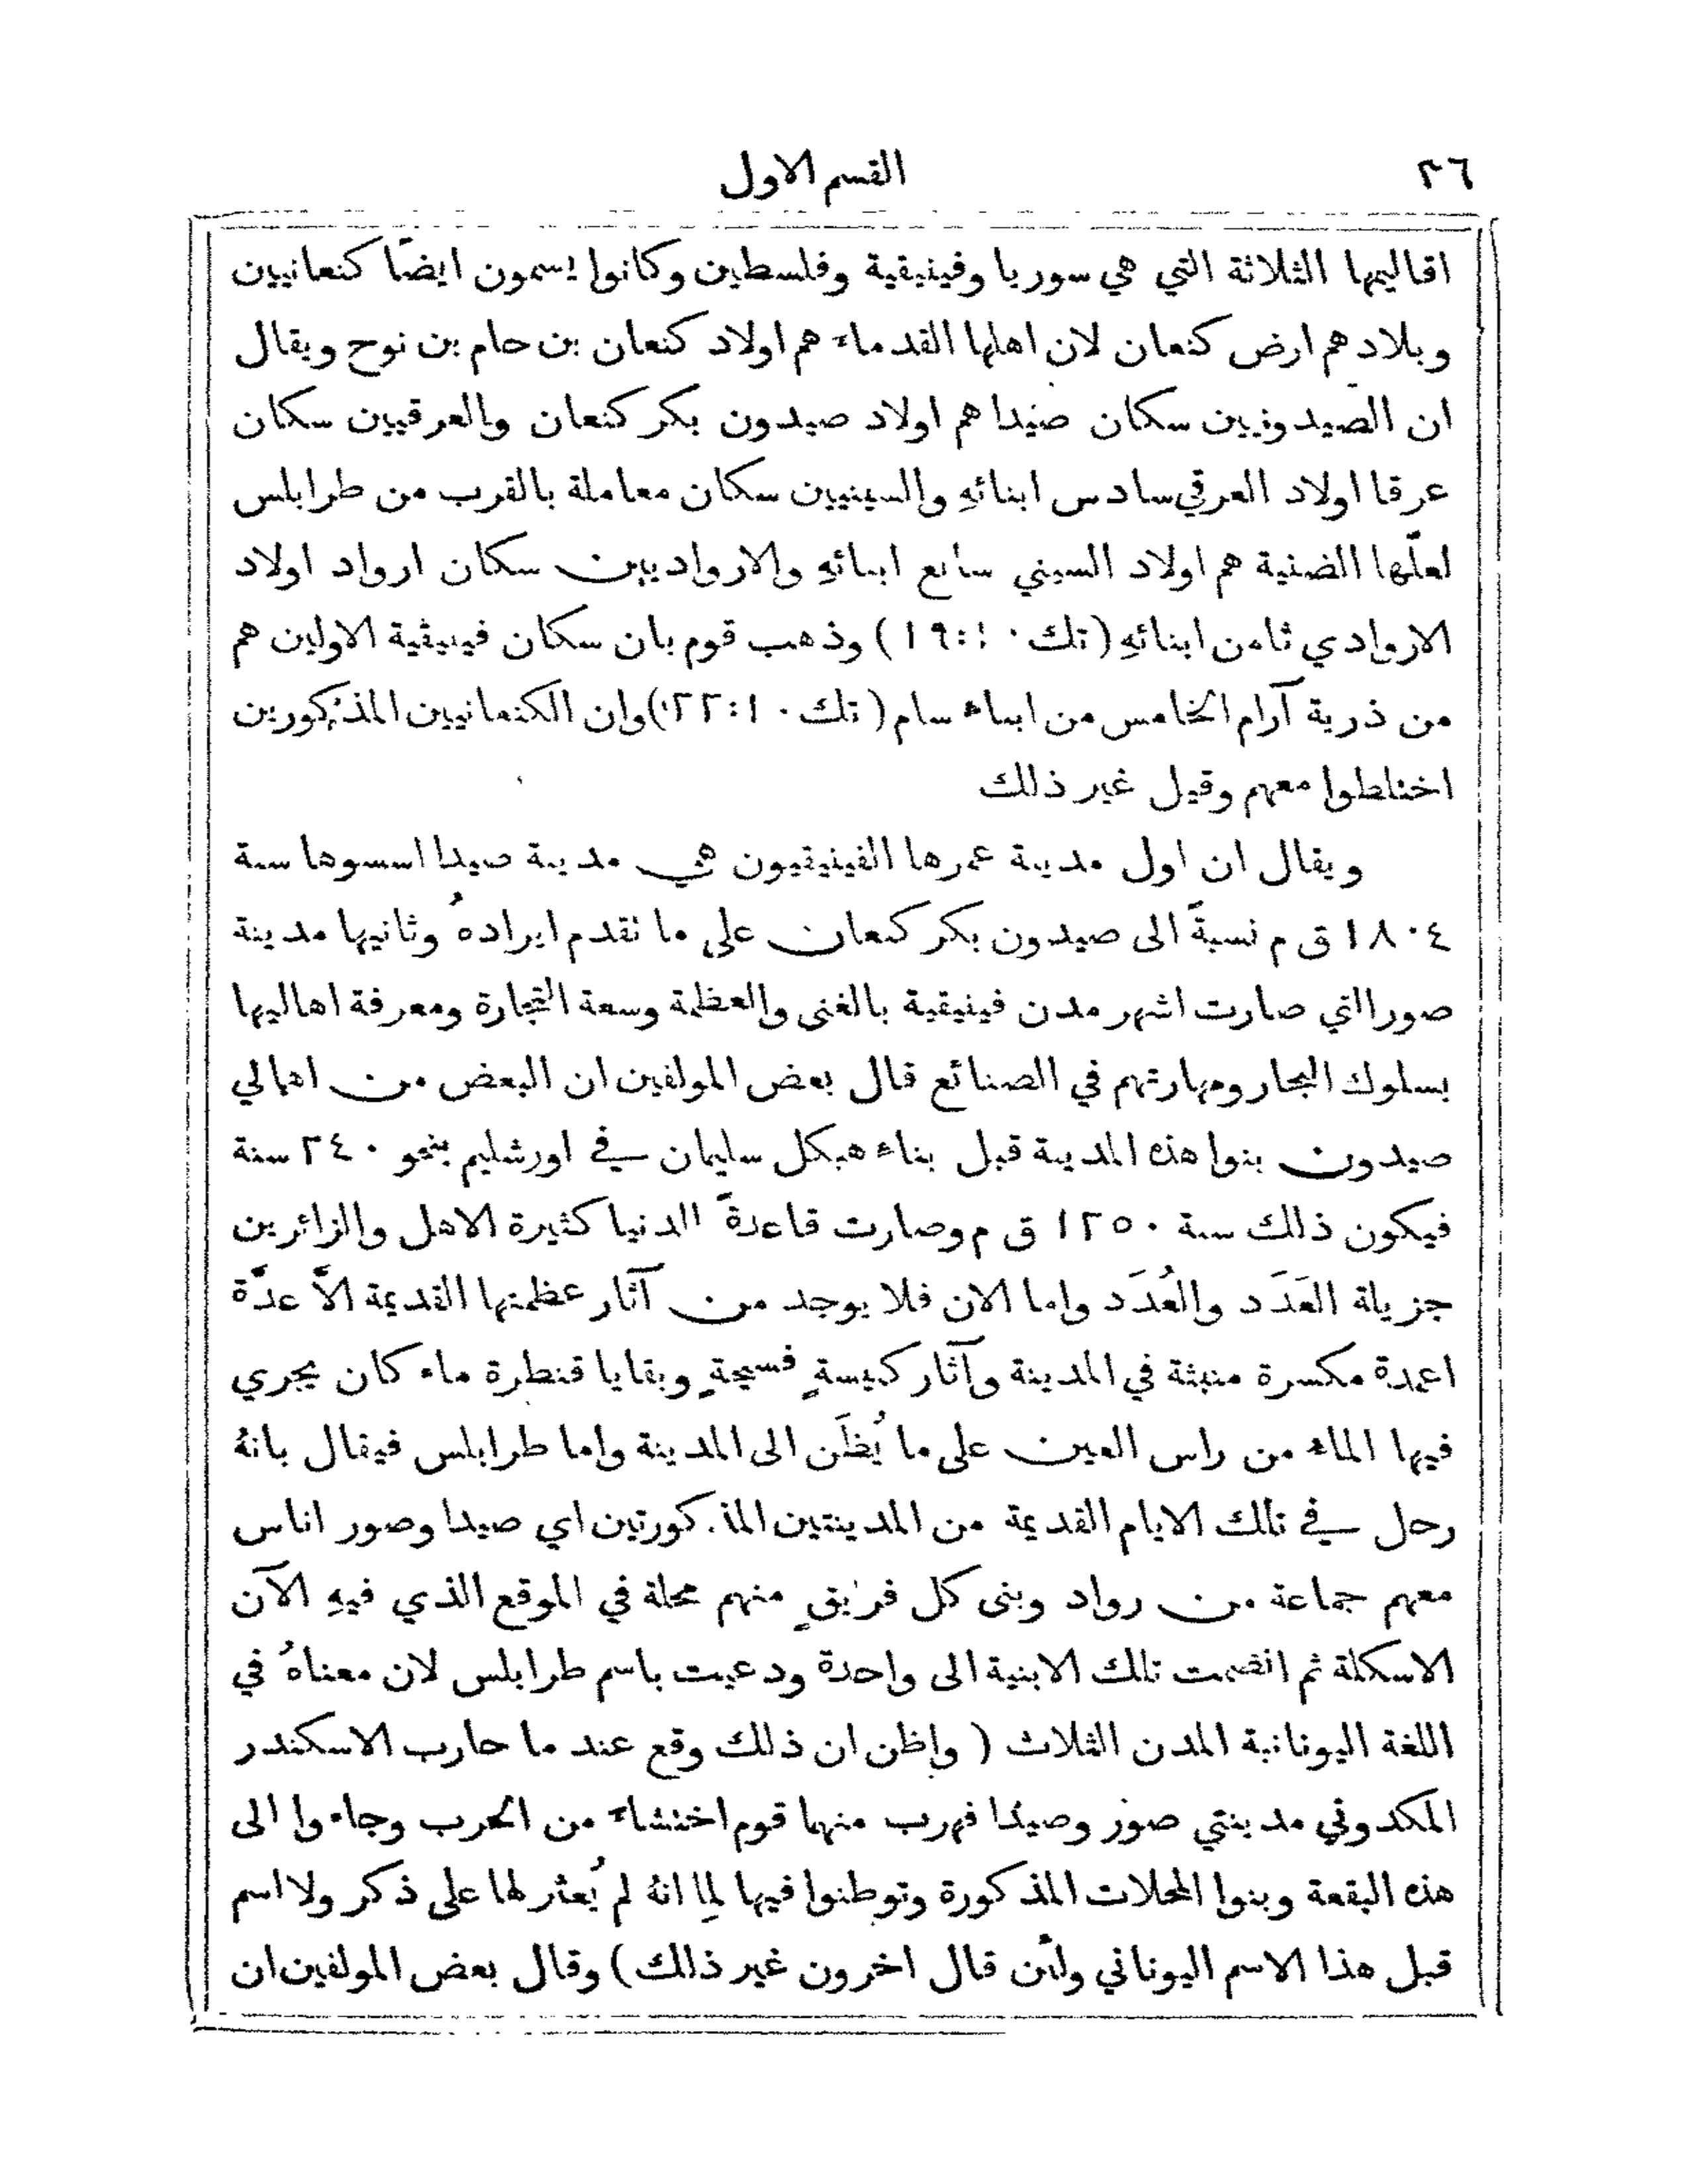 ٣٦
القسم الاول
اقاليمها الثلاثة التي هي سوريا وفينيقية وفلسطين وكانوا يسمون ايضًا كنعانيين
وبلادهم ارض كنعان لان اهلها القدماء هم اولاد كنعان بن حام بن نوح ويقال
ان الصيدونيين سكان صيدا هم اولاد صيدون بكر كنعان والعرقيين سكان
عرقا اولاد العرقي سادس ابنائهِ والسينيين سكان معاملة بالقرب من طرابلس
لعلّها الضنية هم اولاد السيني سابع ابنائهِ والارواديين سكان ارواد اولاد
الاروادي ثامن ابنائهِ (تك ١٠:١٩) وذهب قوم بان سكان فينيقية الاولين هم
من ذرية آرام الخامس من ابناء سام (تك ١٠:٢٢) وان الكنعانيين المذكورين
اختلطوا معهم وقيل غير ذلك
ويقال ان اول مدينة عمرها الفينيقيون هي مدينة صيدا اسسوها سنة
١٨٠٤ ق م نسبةً الى صيدون بكر كنعان على ما تقدم ايرادهُ وثانيها مدينة
صور التي صارت اشهر مدن فينيقية بالغنى والعظمة وسعة التجارة ومعرفة اهاليها
بسلوك البحار ومهارتهم في الصنائع قال بعض المولفين ان البعض من اهالي
صيدون بنوا هذه المدينة قبل بناء هيكل سليمان في اورشليم بنحو ٢٤٠ سنة
فيكون ذلك سنة ١٢٥٠ ق م وصارت قاعدةَ الدنيا كثيرة الاهل والزائرين
جزيلة العَدَد والعُدَد واما الان فلا يوجد من آثار عظمتها القديمة الاَّ عدَّة
اعمدة مكسرة منبثة في المدينة وآثار كنيسةٍ فسيحةٍ وبقايا قنطرة ماء كان يجري
فيها الماء من راس العين على ما يُظَن الى المدينة واما طرابلس فيقال بانهُ
رحل في تلك الايام القديمة من المدينتين المذكورتين اي صيدا وصور اناس
معهم جماعة من رواد وبنى كل فريقٍ منهم محلة في الموقع الذي فيهِ الآن
الاسكلة ثم انضمت تلك الابنية الى واحدة ودعيت باسم طرابلس لان معناهُ في
اللغة اليونانية المدن الثلاث (واظن ان ذلك وقع عند ما حارب الاسكندر
المكدوني مدينتي صور وصيدا فهرب منها قوم اختشاءً من الحرب وجاءوا الى
هذه البقعة وبنوا المحلات المذكورة وتوطنوا فيها لِما انهُ لم يُعثر لها على ذكر ولا اسم
قبل هذا الاسم اليوناني ولئن قال اخرون غير ذلك) وقال بعض المولفين ان